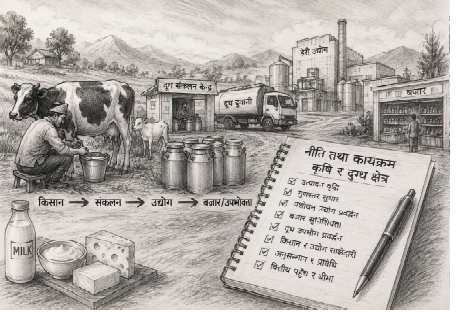 दुग्ध संकलन केन्द्र
डेरी उद्योग
दूध ढुवानी
बजार
किसान → संकलन → उद्योग → बजार/उपभोक्ता
MILK
नीति तथा कार्यक्रम
कृषि र दुग्ध क्षेत्र
☑ उत्पादन वृद्धि
☑ गुणस्तर सुधार
☑ उद्योग प्रवर्द्धन
☑ बजार सुनिश्चितता
☑ दूध उपभोग प्रवर्द्धन
☑ किसान र उद्योग साझेदारी
☑ अनुसन्धान र प्रविधि
☑ वित्तीय पहुँच र बीमा